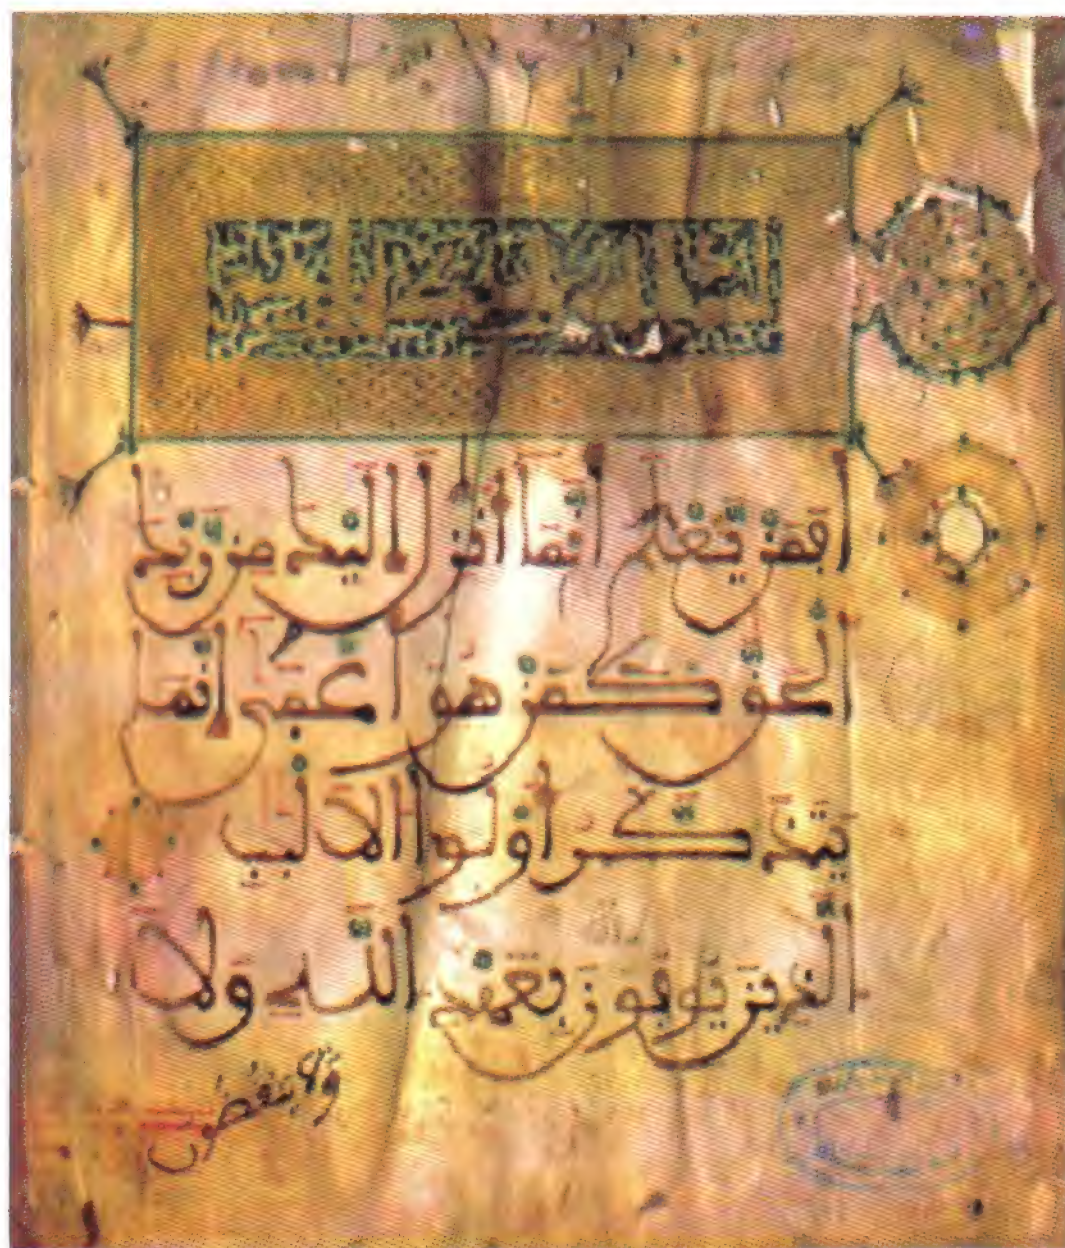 افمن يعلم انما انزل اليك من ربك
الحق كمن هو اعمى انما
يتذكر اولوا الالبب
الذين يوفون بعهد الله ولا
ولا ينقضون